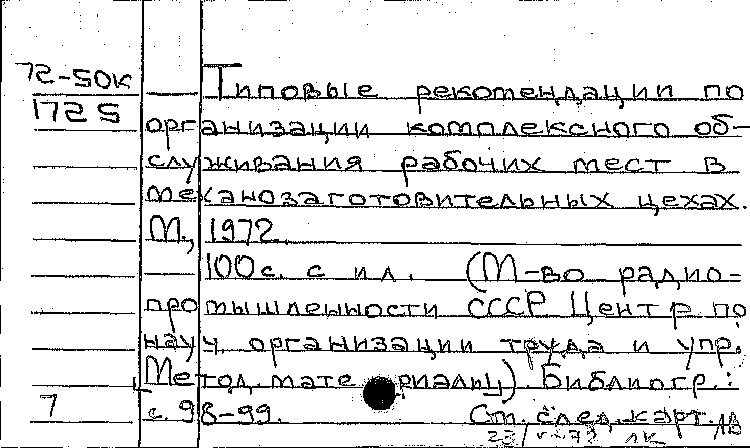 72-50к
1725
Типовые рекомендации по
организации комплексного об-
служивания рабочих мест в
механозаготовительных цехах.
М., 1972.
100 с. с ил. (М-во радио-
промышленности СССР Центр по
науч организации труда и упр.
Метод. материалы). Библиогр.:
7
с. 98-99. См. след. карт.